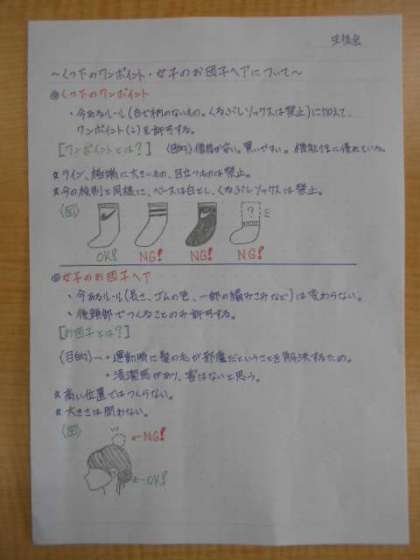 生徒会
～くつ下のワンポイント・女子のお団子ヘアについて～
◎くつ下のワンポイント
・今あるルール(白で柄のないもの。くるぶしソックスは禁止)に加えて、
ワンポイント(1つ)を許可する。
[ワンポイントとは?] (目的)価格が安い。買いやすい。機能性に優れている。
☆ライン、極端に大きいもの、目立つものは禁止。
☆今の規則と同様に、ベースは白とし、くるぶしソックスは禁止。
(図)
?
OK! NG! NG! NG!
◎女子のお団子ヘア
・今あるルール(長さ、ゴムの色、一部の編みこみなど)は変わらない。
・後頭部でつくることのみ許可する。
[お団子とは?]
(目的)・運動時に髪の毛が邪魔だということを解決するため。
・清潔感があり、害はないと思う。
☆高い位置ではつくらない。
☆大きさは問わない。
(図)
←NG!
←OK!